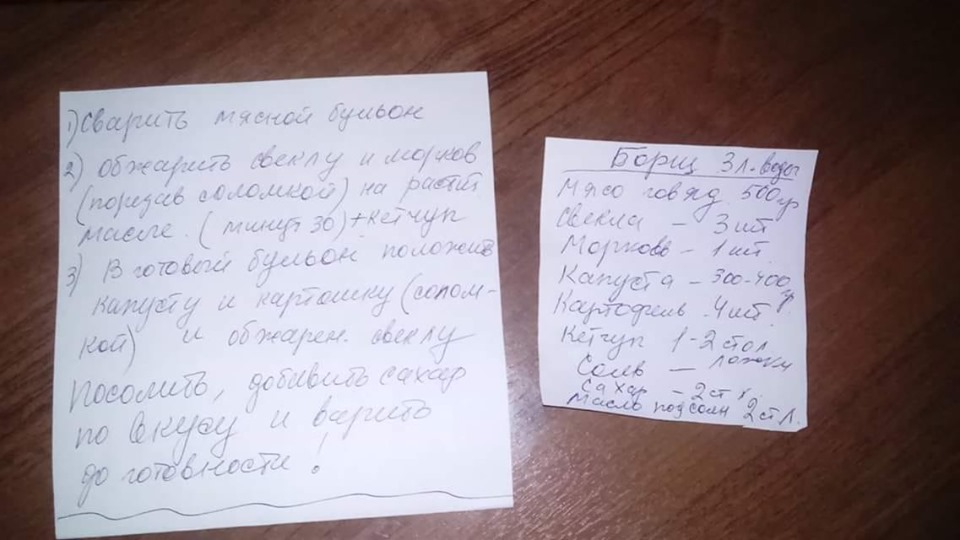 1) Сварить мясной бульон
2) Обжарить свеклу и морков
(порезав соломкой) на растит.
масле. (минут 30) + кетчуп
3) В готовый бульон положить
капусту и картошку (солом-
кой) и обжарен. свеклу
Посолить, добавить сахар
по вкусу и варить
до готовности!
Борщ 3л. воды
Мясо говяд. 500гр
Свекла – 3 шт
Морковь – 1 шт.
Капуста – 300-400гр
Картофель 4 шт.
Кетчуп 1-2 стол
ложки
Соль –
Сахар – 2 ст л.
Масло подсолн 2 ст л.